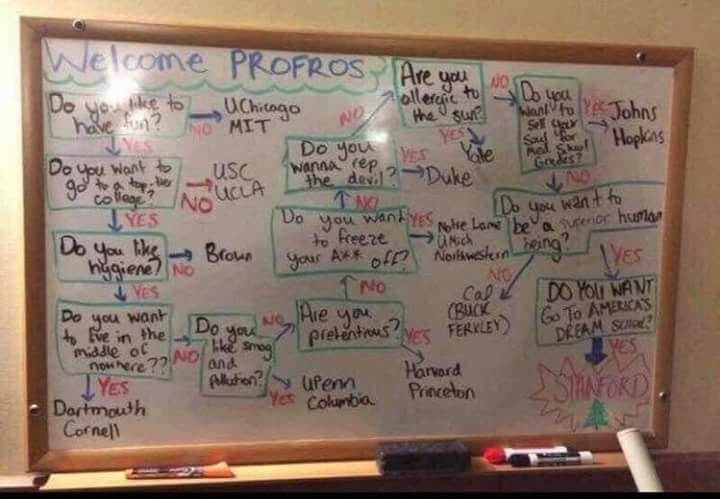 Welcome PROFROS
Do you like to
have fun?
NO
UChicago
MIT
YES
Do you want to
go to a top-tier
college?
NO
USC
UCLA
YES
Do you like
hygiene?
NO
Brown
YES
Do you want
to live in the
middle of
nowhere??
YES
Dartmouth
Cornell
NO
Do you
like smog
and
Pollution?
YES
UPenn
Columbia
NO
Are you
pretentious?
YES
Harvard
Princeton
NO
Do you want
to freeze
your A** off?
YES
Notre Lame
UMich
Northwestern
NO
Do you
wanna rep
the devil?
YES
Duke
NO
Are you
allergic to
the sun?
YES
Yale
NO
Do you
want to
sell your
soul for
med school
Grades?
YES
Johns
Hopkins
NO
Do you want to
be a superior human
being?
NO
Cal
(BUCK
FERKLEY)
YES
DO YOU WANT
Go To AMERICA'S
DREAM SCHOOL?
YES
STANFORD